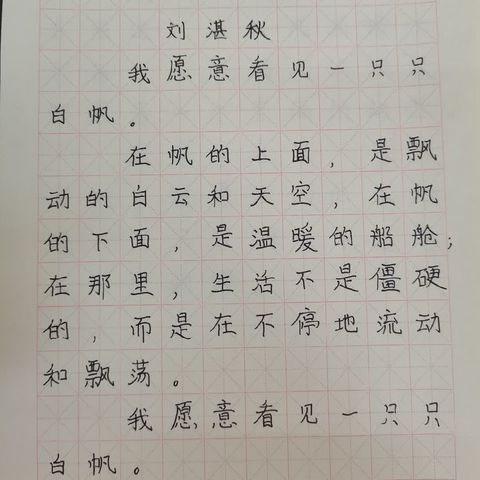 刘湛秋
我愿意看见一只只
白帆。
在帆的上面，是飘
动的白云和天空，在帆
的下面，是温暖的船舱；
在那里，生活不是僵硬
的，而是在不停地流动
和飘荡。
我愿意看见一只只
白帆。